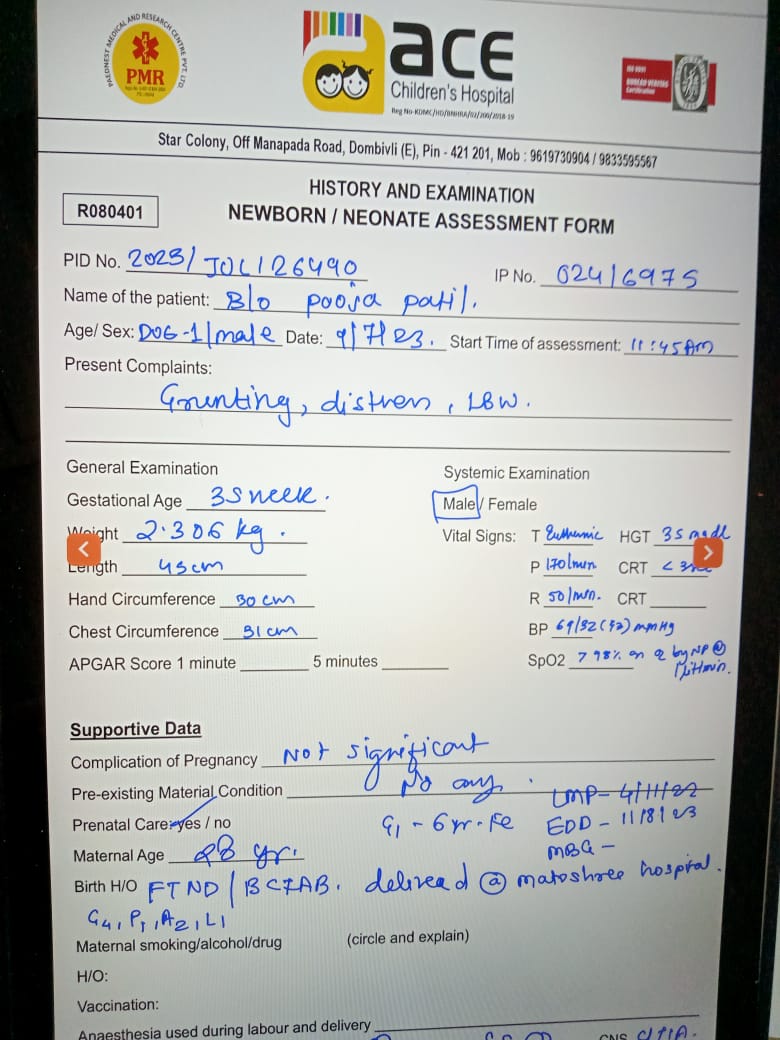 PAEDNEST MEDICAL AND RESEARCH CENTRE PVT. LTD.
PMR
ace
Children's Hospital
Reg No-KDMC/HD/BNHRA/02/200/2018-19
ISO 9001
BUREAU VERITAS
Certification
Star Colony, Off Manapada Road, Dombivli (E), Pin - 421 201, Mob : 9619730904 / 9833595567
HISTORY AND EXAMINATION
R080401
NEWBORN / NEONATE ASSESSMENT FORM
PID No. 2023/JUL/26490 IP No. 02416975
Name of the patient: B/o pooja patil.
Age/ Sex: DOG-1/male Date: 9/7/23. Start Time of assessment: 11:45AM
Present Complaints:
Grunting, distress, LBW.
General Examination Systemic Examination
Gestational Age 35 week. Male / Female
Weight 2.306 kg. Vital Signs: T Euthermic HGT 35 mg dl
Length 45cm P 170/min CRT < 3
Hand Circumference 30 cm R 50/min. CRT
Chest Circumference 31 cm BP 69/32 (42) mmHg
APGAR Score 1 minute 5 minutes SpO2 798% on by NP @
Supportive Data
Complication of Pregnancy Not significant
Pre-existing Material Condition No any. LMP- 4/11/22
Prenatal Care: yes / no G1 - 6 yr. Fe EDD - 11/8/23
Maternal Age 28 yr. MBG -
Birth H/O FTND / BCIAB. delivered @ matoshree hospital.
G4, P1, A2, L1
Maternal smoking/alcohol/drug (circle and explain)
H/O:
Vaccination:
Anaesthesia used during labour and delivery
CNS